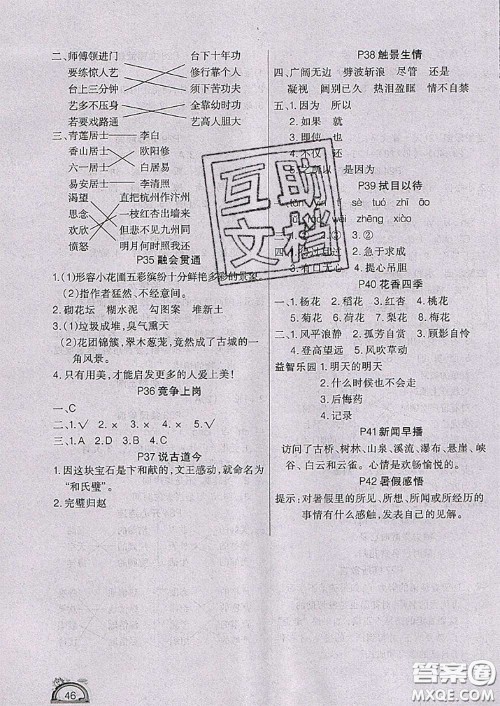 二、师傅领进门 台下十年功
要练惊人艺 修行靠个人
台上三分钟 须下苦功夫
艺多不压身 全靠幼时功
若要戏路通 艺高人胆大
三、青莲居士 李白
香山居士 欧阳修
六一居士 白居易
易安居士 李清照
渴望 直把杭州作汴州
思念 一枝红杏出墙来
欢欣 但悲不见九州同
愤怒 明月何时照我还
P35 融会贯通
1.(1)形容小花圃五彩缤纷十分鲜艳多彩的景象
(2)指作者猛然、不经意间。
2.砌花坛 糊水泥 勾图案 堆新土
3.(1)垃圾成堆、臭气熏天
(2)花团锦簇,翠木葱茏,竟然成了古城的一
角风景。
4.只有用美,才能启发更多的人爱上美!
P36 竞争上岗
一、C
二、1.√ 2.× 3.× 4.× 5.√
三、1.A 2.D 3.B 4.C
P37 说古道今
1.因这块宝石是卞和献的,文王感动,就命名为
“和氏璧”。
2.完璧归赵
P38 触景生情
四、广阔无边 劈波斩浪 尽管 还是
凝视 阔别已久 热泪盈眶 情不自禁
五、1.因为 所以
2.如果 就
3.即使 也
4.不仅 还
是因为
P39 拭目以待
sè tuó zhī āo
wāi zhēng xiào
3.②
2.急于求成
4.提心吊胆
P40 花香四季
一、1.梅花 2.稻花 3.杏花 4.桃花
二、1.风平浪静 2.孤芳自赏 3.顾影自怜
4.登高望远 5.风吹草动
益智乐园 1.明天的明天
2.什么时候也不会走
3.后悔药
4.记录
P41 新闻早播
访问了古桥、树林、山泉、溪流、瀑布、悬崖、峡
谷、白云和云雀。心情是欢畅愉悦的。
P42 暑假感悟
提示:对暑假里的所见、所想、所闻或所经历的
事情有什么感触,发表自己的见解。
互助
文档
46
答案圈
MXQE.COM